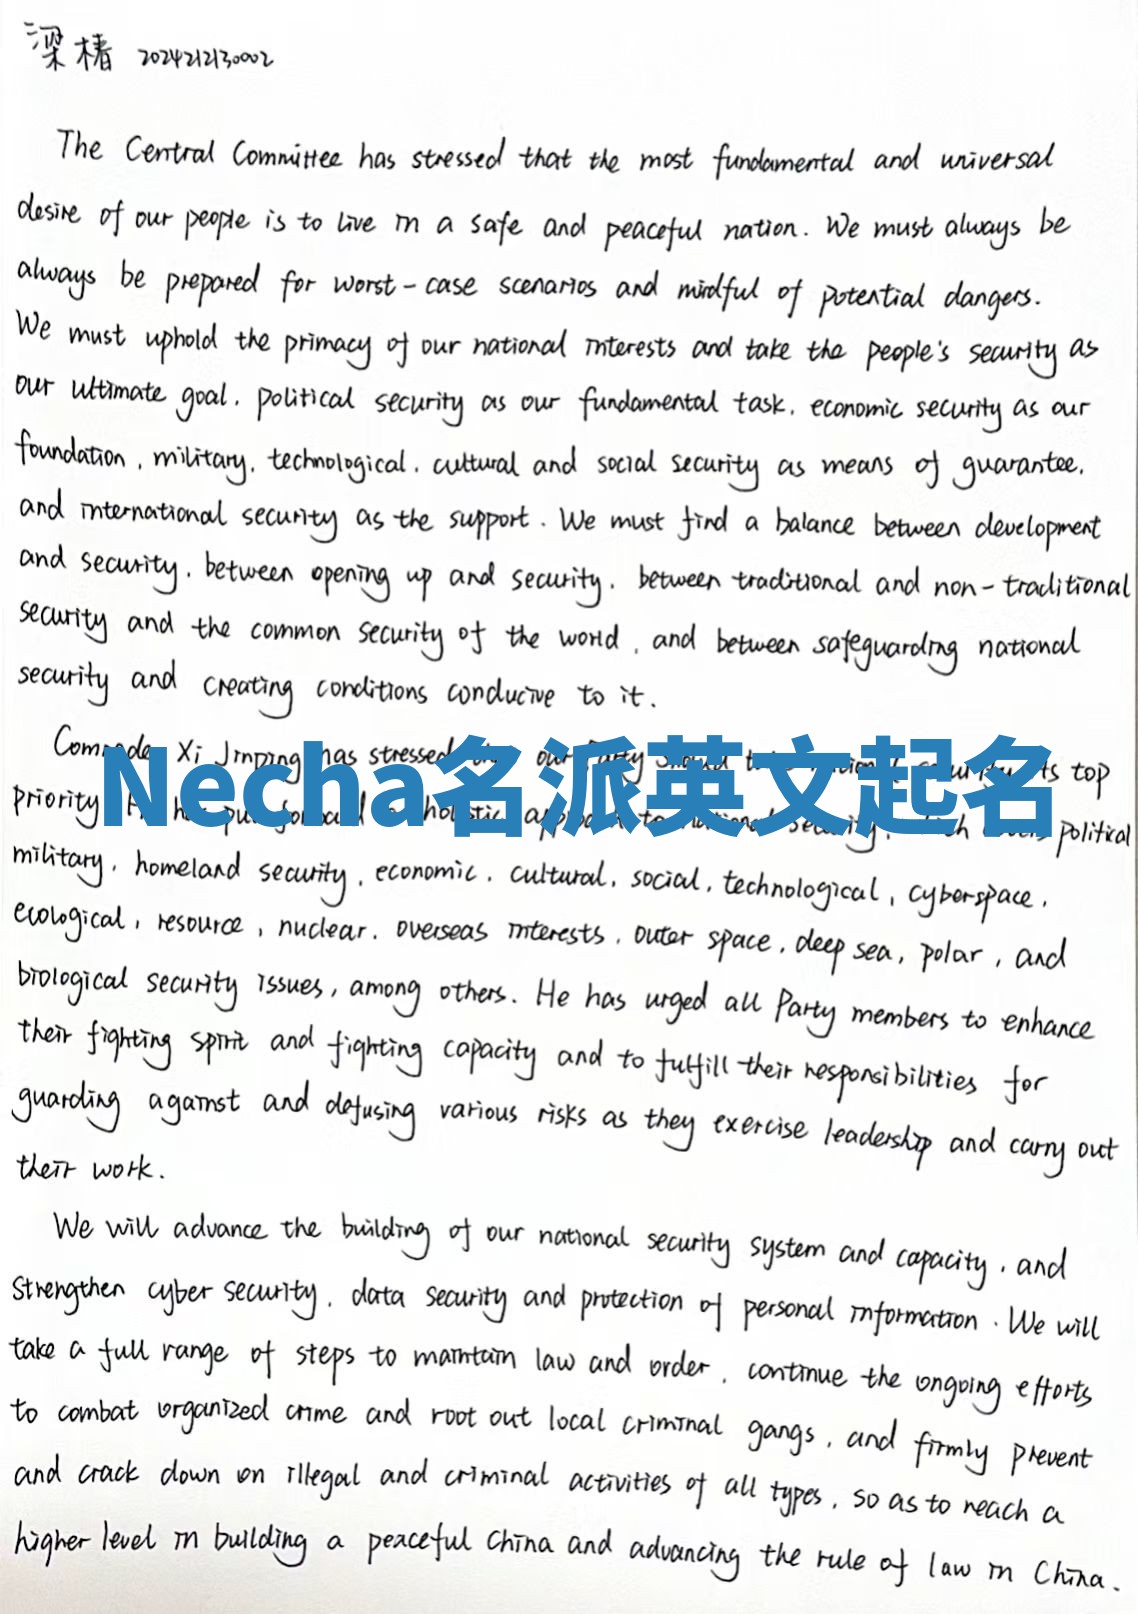 梁椿 2024212130002
The Central Committee has stressed that the most fundamental and universal
desire of our people is to live in a safe and peaceful nation. We must always be
always be prepared for worst-case scenarios and mindful of potential dangers.
We must uphold the primacy of our national interests and take the people's security as
our ultimate goal, political security as our fundamental task, economic security as our
foundation, military, technological, cultural and social security as means of guarantee,
and international security as the support. We must find a balance between development
and security, between opening up and security, between traditional and non-traditional
security and the common security of the world, and between safeguarding national
security and creating conditions conducive to it.
Comrade Xi Jinping has stressed our Party should security its top
Necha名派英文起名
priority. holistic political
military, homeland security, economic, cultural, social, technological, cyberspace,
ecological, resource, nuclear, overseas interests, outer space, deep sea, polar, and
biological security issues, among others. He has urged all Party members to enhance
their fighting spirit and fighting capacity and to fulfill their responsibilities for
guarding against and defusing various risks as they exercise leadership and carry out
their work.
We will advance the building of our national security system and capacity, and
strengthen cyber security, data security and protection of personal information. We will
take a full range of steps to maintain law and order, continue the ongoing efforts
to combat organized crime and root out local criminal gangs, and firmly prevent
and crack down on illegal and criminal activities of all types, so as to reach a
higher level in building a peaceful China and advancing the rule of law in China.